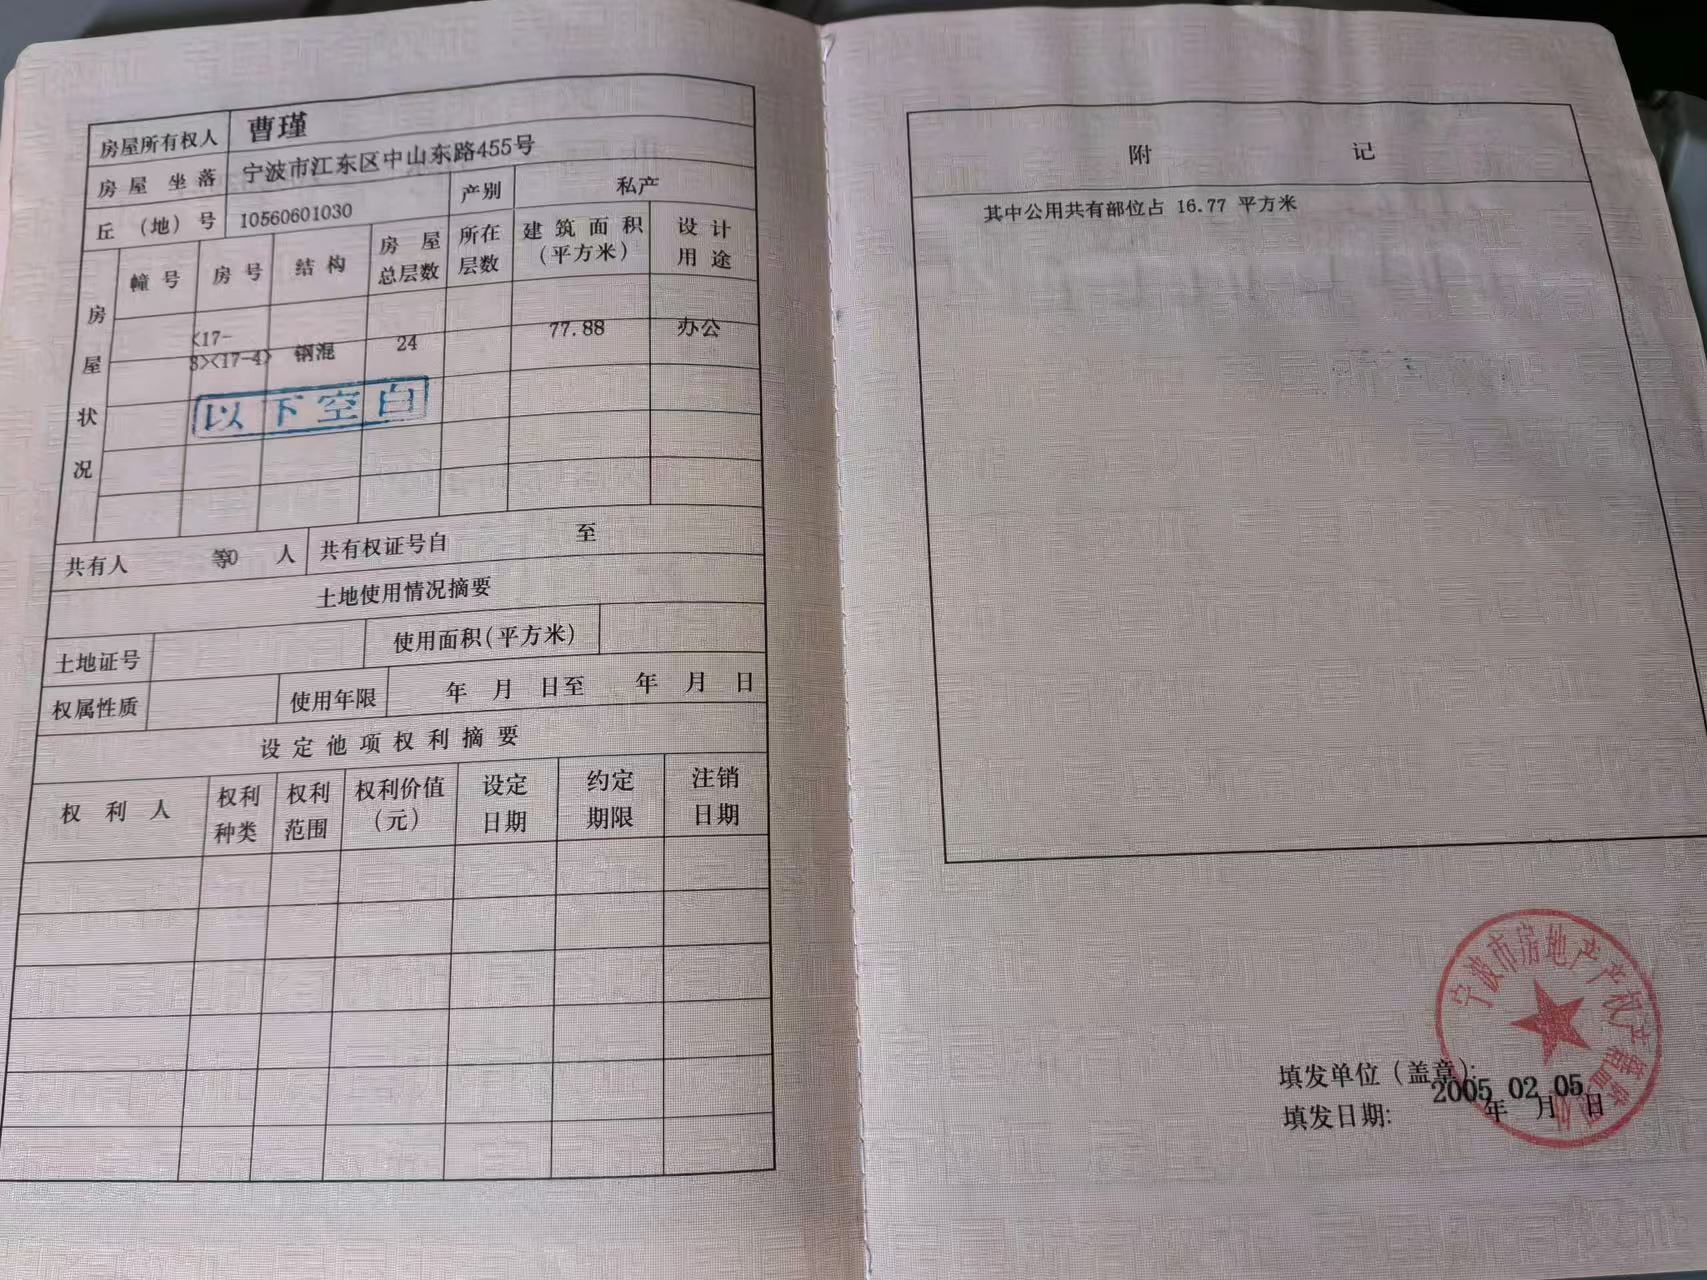 房屋所有权人 曹瑾
房屋坐落 宁波市江东区中山东路455号
丘（地）号 10560601030 产别 私产
房屋状况
幢号 房号 结构 房屋总层数 所在层数 建筑面积（平方米） 设计用途
<17-
3><17-4> 钢混 24 77.88 办公
以下空白
共有人 等0人 共有权证号自 至
土地使用情况摘要
土地证号 使用面积(平方米)
权属性质 使用年限 年 月 日至 年 月 日
设定他项权利摘要
权利人 权利种类 权利范围 权利价值（元） 设定日期 约定期限 注销日期
附 记
其中公用共有部位占 16.77 平方米
宁波市房地产产权产籍监理
填发单位（盖章）:
填发日期: 2005年02月05日